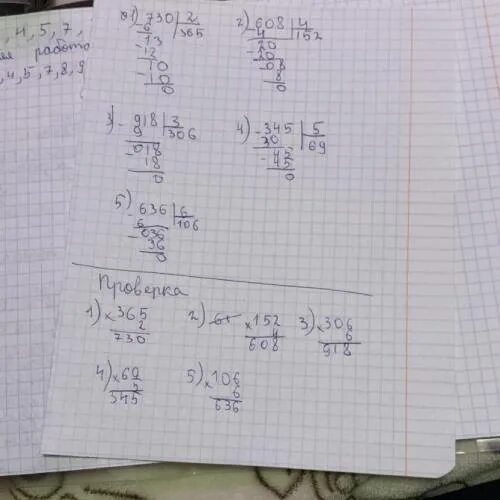 , 4, 5, 7,
работа
, 4, 5, 7, 8, 9
1) 730 | 2
6 | 365
- 13
12
- 10
10
0
2) - 608 | 4
4 | 152
- 20
20
- 08
8
0
3) - 918 | 3
9 | 306
- 018
18
0
4) - 345 | 5
30 | 69
- 45
45
0
5) - 636 | 6
6 | 106
- 036
36
0
Проверка
1) × 365
2
730
2) × 152
4
608
3) × 306
918
4) × 69
5
345
5) × 106
6
636